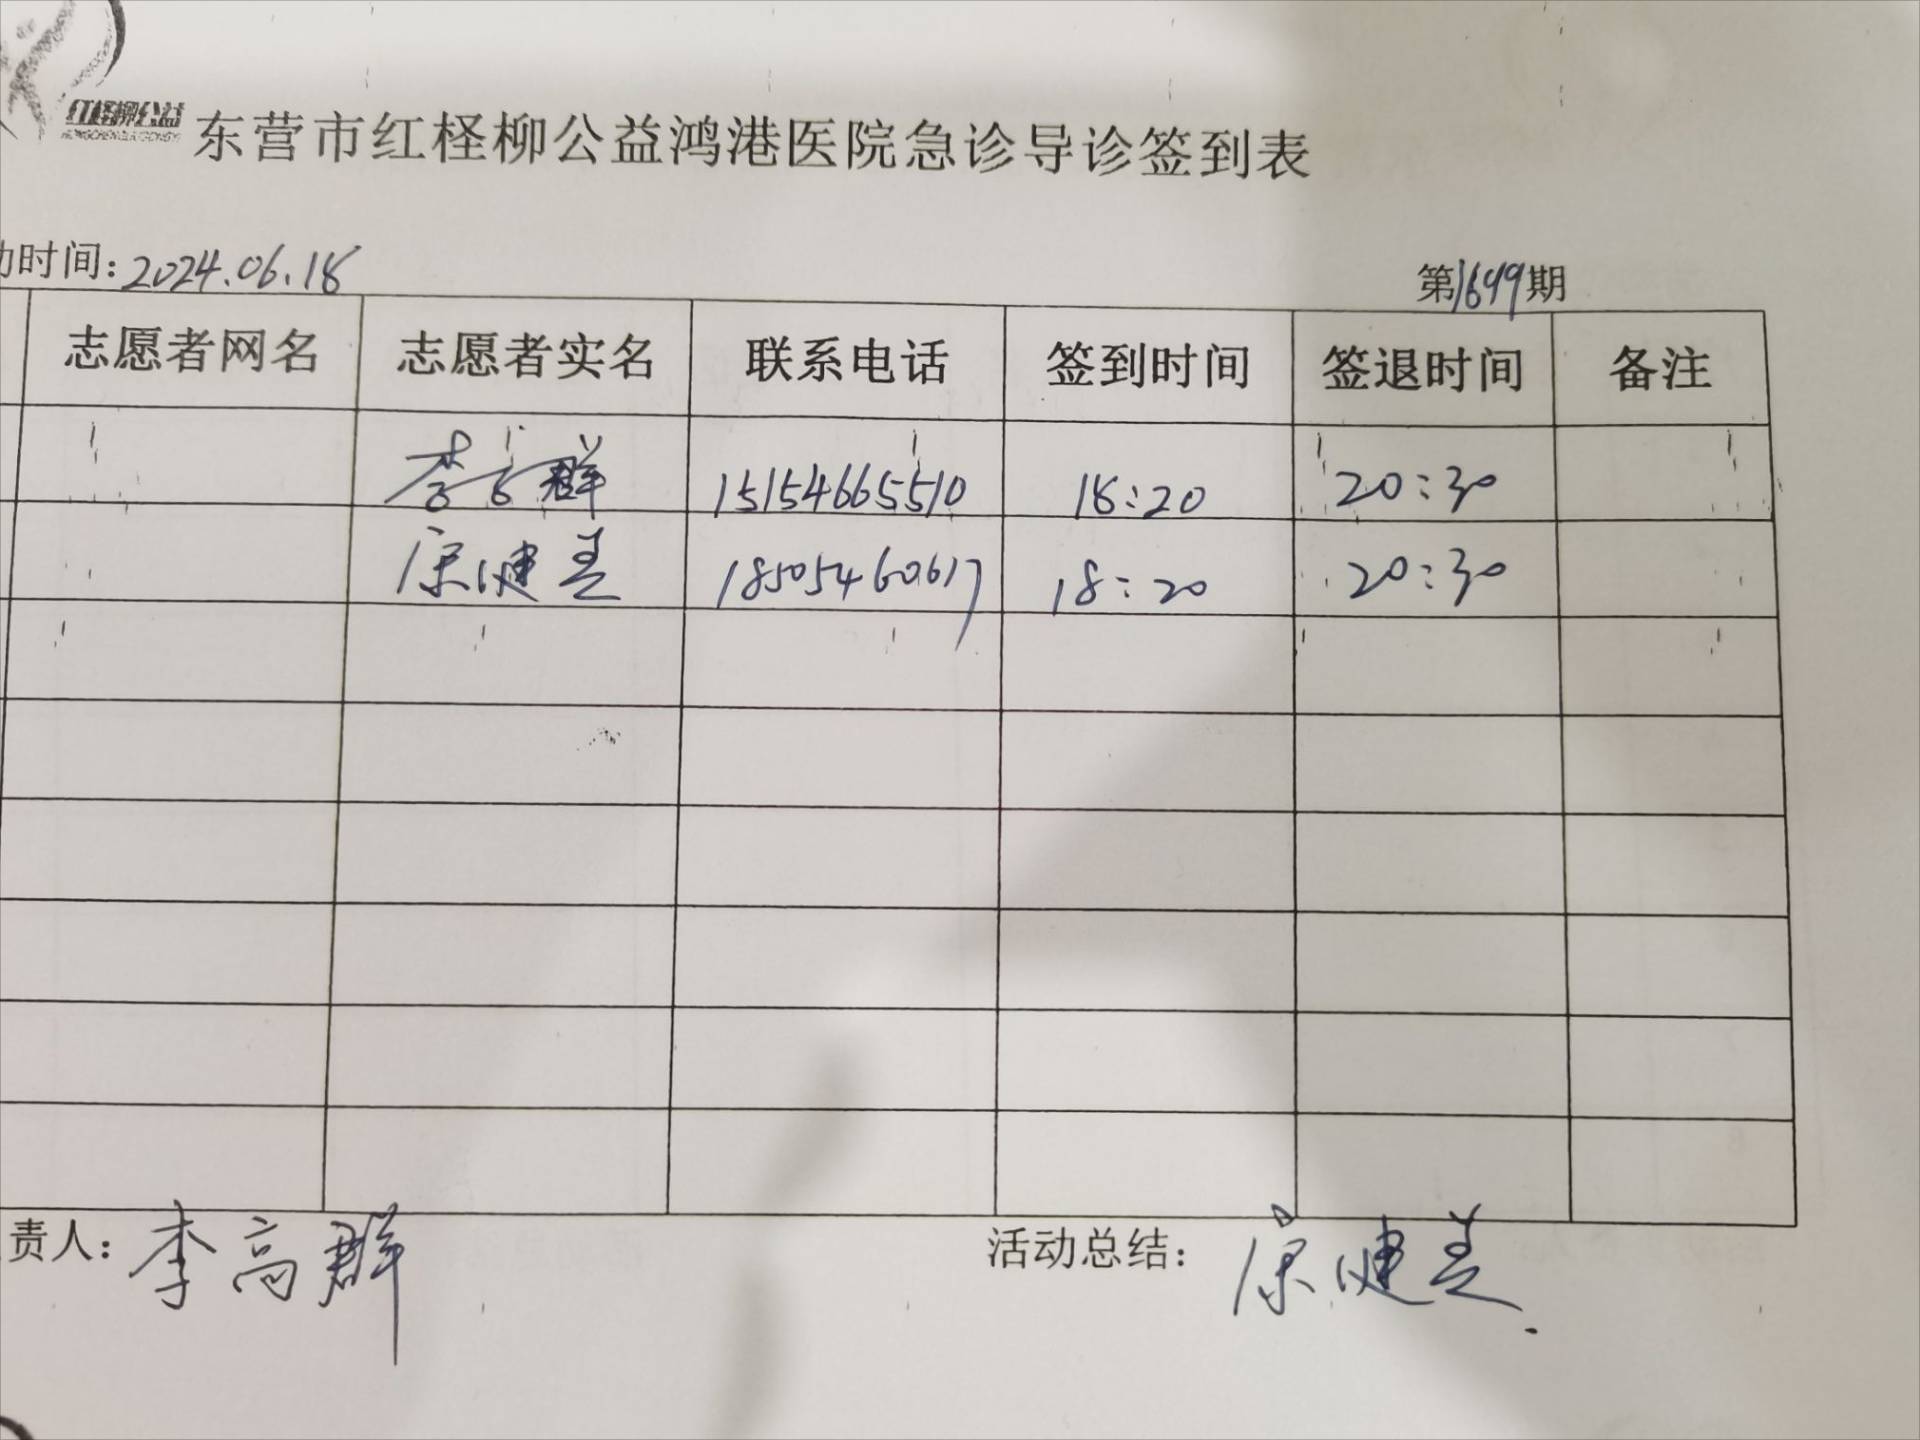 红柽柳公益
东营市红柽柳公益鸿港医院急诊导诊签到表
动时间:2024.06.18
第1649期
志愿者网名 志愿者实名 联系电话 签到时间 签退时间 备注
李高群 15154665510 18:20 20:30
康健美 18505460617 18:20 20:30
责人:李高群 活动总结:康健美